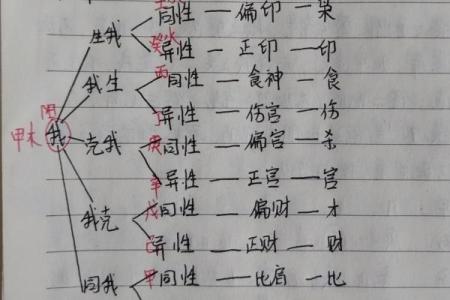 同性 — 偏印 — 枭
生我
癸水 异性 — 正印 — 印
丙 同性 — 食神 — 食
我生
丁 异性 — 伤宫 — 伤
阳
甲木 我
克我
庚 同性 — 偏宫 — 杀
辛 异性 — 正宫 — 宫
戊 同性 — 偏财 — 才
我克
己 异性 — 正财 — 财
同我
甲 同性 — 比肩 — 比